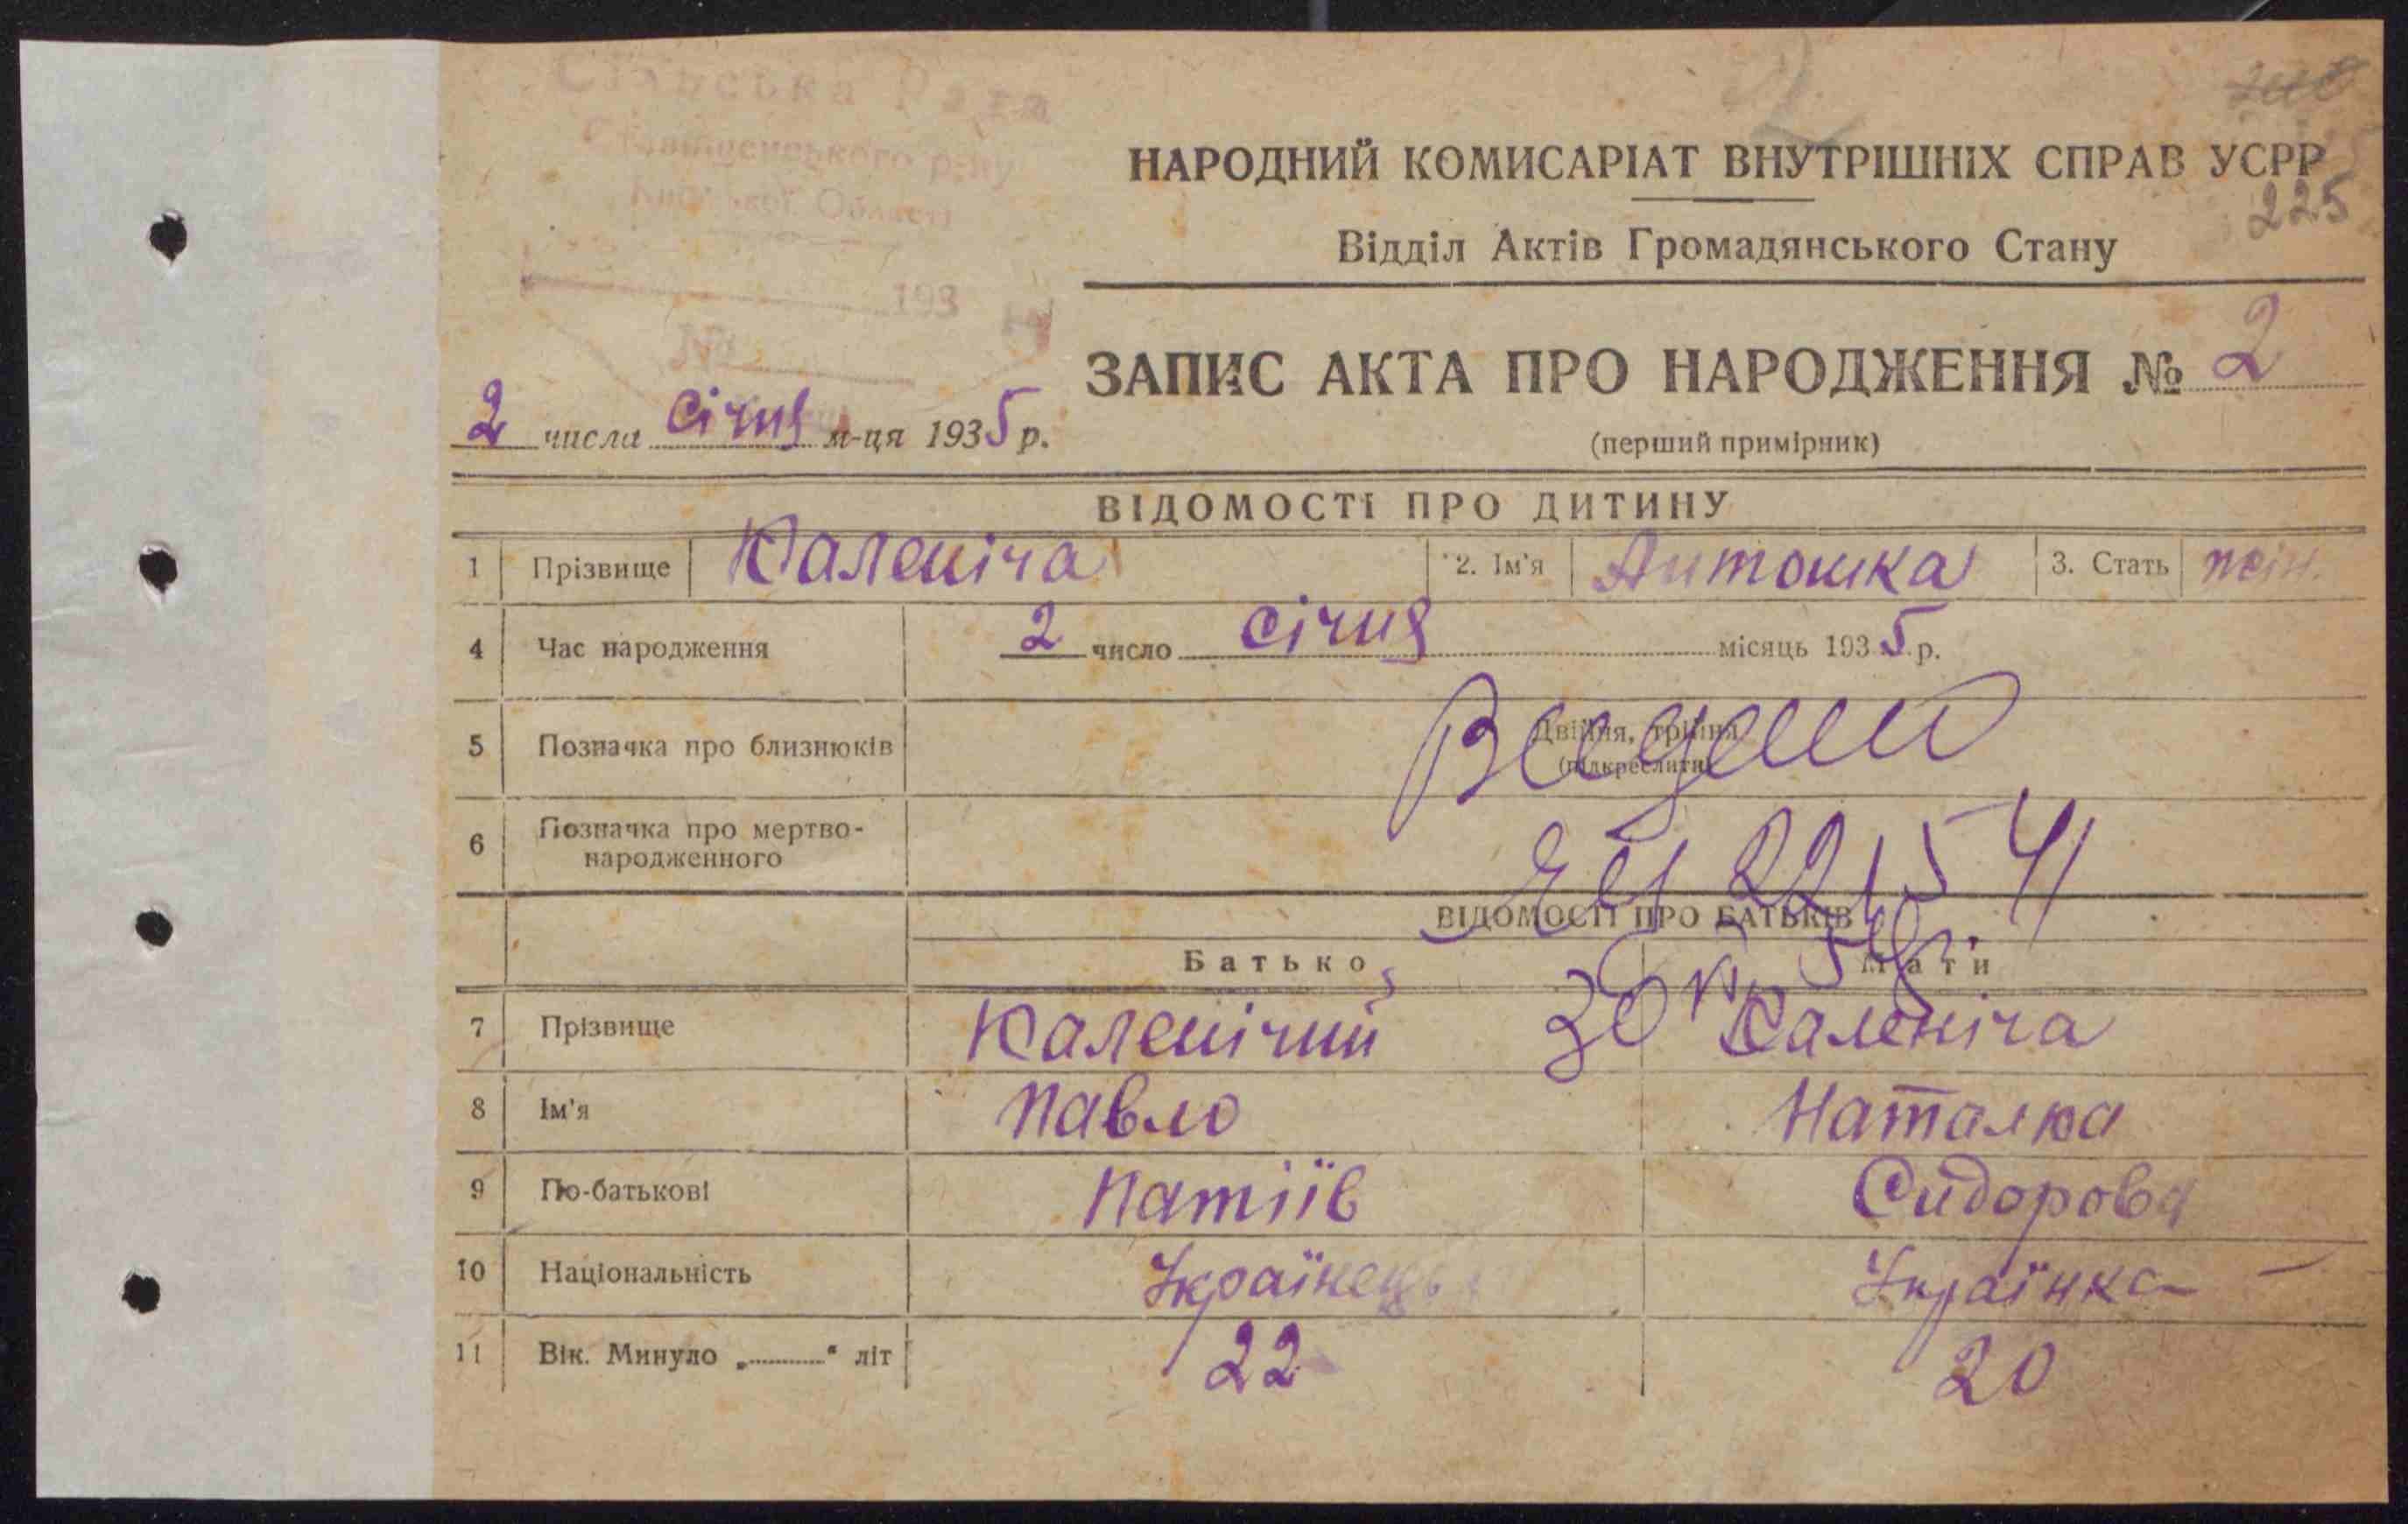 Сільська Рада
Ставищенського р-ну
Київської Області
193
№
225
НАРОДНИЙ КОМИСАРІАТ ВНУТРІШНІХ СПРАВ УСРР
Відділ Актів Громадянського Стану
ЗАПИС АКТА ПРО НАРОДЖЕННЯ № 2
2 числа січня м-ця 1935 р.
(перший примірник)
ВІДОМОСТІ ПРО ДИТИНУ
1 Прізвище Каленіча 2. Ім'я Антошка 3. Стать жін.
4 Час народження 2 число січня місяць 1935 р.
5 Позначка про близнюків Двійня, трійня
(підкреслити)
Видано
6 Позначка про мертво-
народженного
22/5 41
ВІДОМОСТІ ПРО БАТЬКІВ
Батько Мати
7 Прізвище Каленічий Каленіча
8 Ім'я Павло Наталка
9 По-батькові Патіїв Сидорова
10 Національність Українець Українка
11 Вік. Минуло „ “ літ 22 20